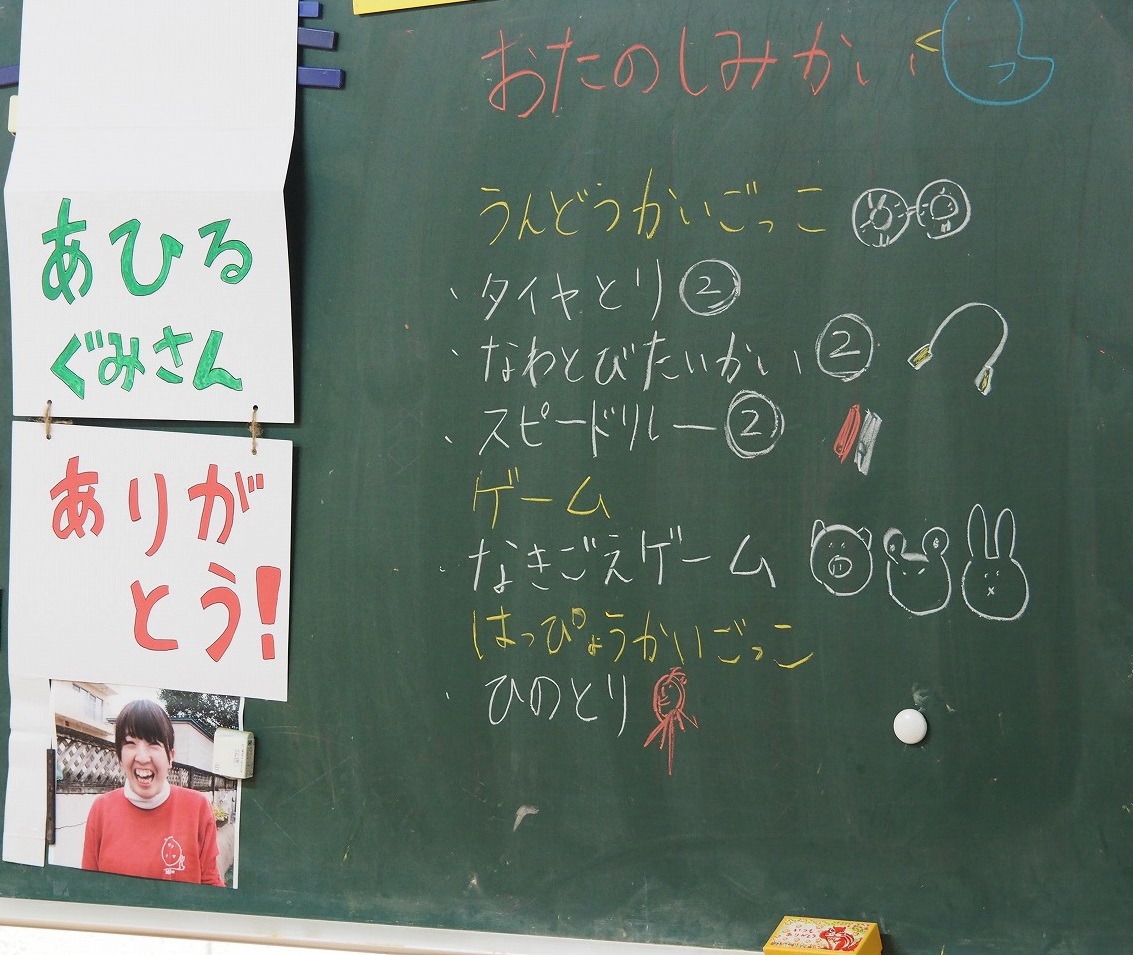 あひる
ぐみさん
ありが
とう!
おたのしみかい
うんどうかいごっこ
・タイヤとり②
・なわとびたいかい②
・スピードリレー②
ゲーム
・なきごえゲーム
はっぴょうかいごっこ
・ひのとり
いつも
ありがとう